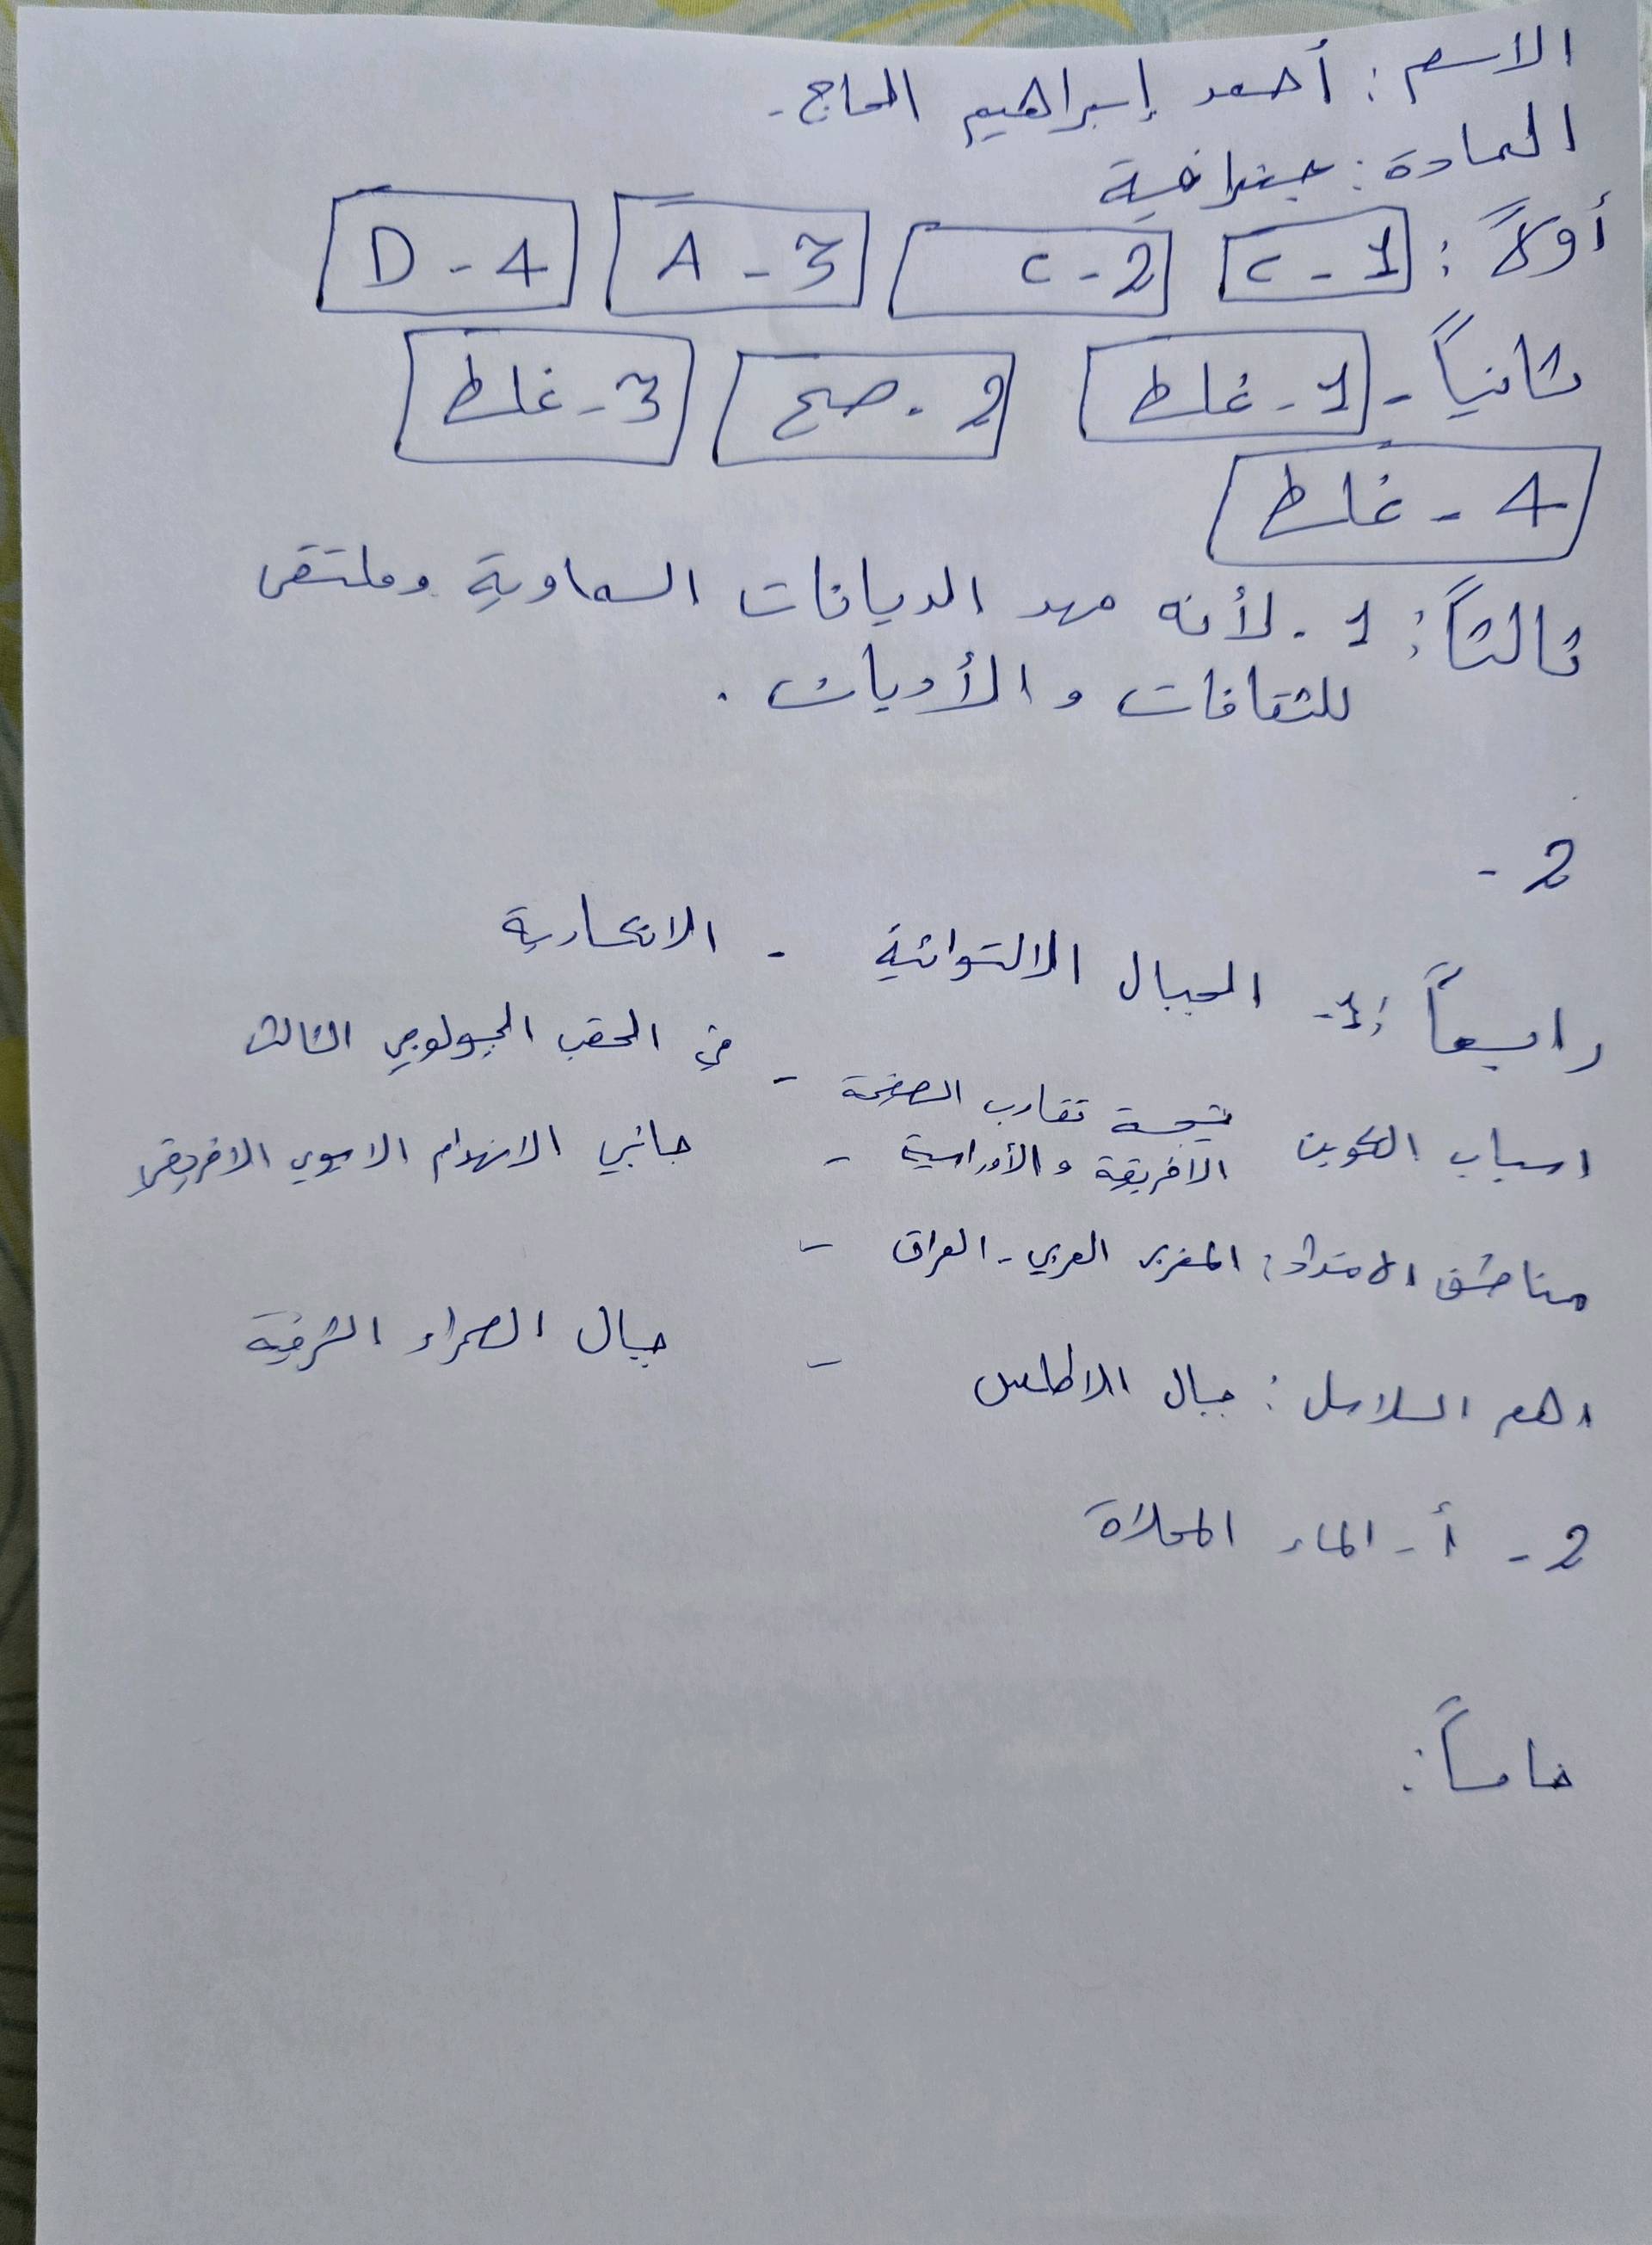 الاسم : أحمد إبراهيم الحاج .
المادة : جغرافية
أولاً : 1 - C 2 - C 3 - A 4 - D
ثانياً - 1 - غلط 2 - صح 3 - غلط
4 - غلط
ثالثاً : 1 . لأنه مهد الديانات السماوية وملتقى
للثقافات و الأديان .
2 -
رابعاً : 1- الجبال الالتوائية - الانكسارية
اسباب التكوين نتيجة تقارب الصفيحة - في الحقب الجيولوجي الثالث
الافريقية و الأوراسية - جانبي الانهدام الاسيوي الافريقي
مناطق الامتداد : المغرب العربي - العراق -
اهم السلاسل : جبال الاطلس - جبال الصحراء الشرقية
2 - أ - الماء المحلاة
خامساً :